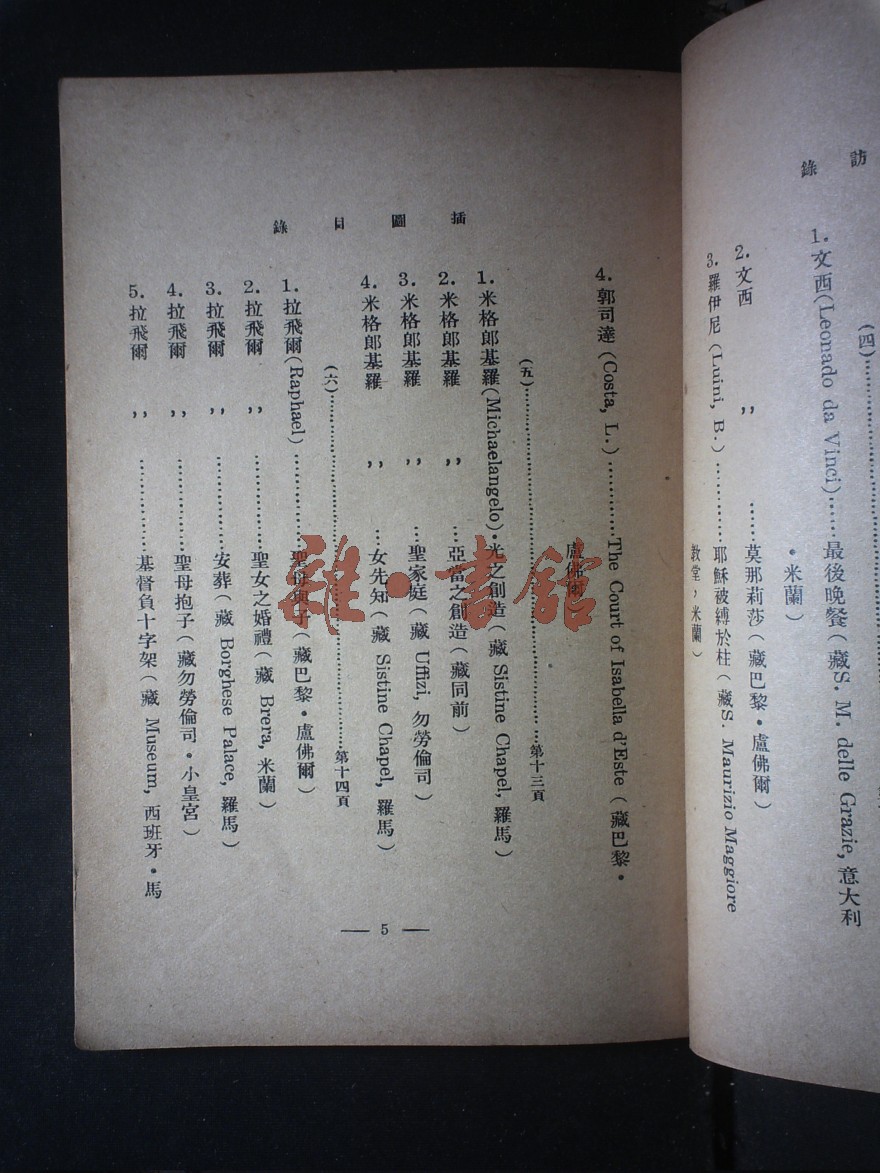 訪
錄
(四)
1. 文西 (Leonado da Vinci)……最後晚餐(藏S. M. delle Grazie, 意大利
・米蘭)
2. 文西 ,, ……莫那莉莎(藏巴黎・盧佛爾)
3. 羅伊尼 (Luini, B.)…………耶穌被縛於柱(藏S. Maurizio Maggiore
教堂,米蘭)
插圖目錄
4. 郭司達 (Costa, L.)…………The Court of Isabella d'Este (藏巴黎・
盧佛爾)
(五)……………………第十三頁
1. 米格郎基羅 (Michaelangelo)・光之創造(藏 Sistine Chapel, 羅馬)
2. 米格郎基羅 ,, ……亞當之創造(藏同前)
3. 米格郎基羅 ,, ……聖家庭(藏 Uffizi, 勿勞倫司)
4. 米格郎基羅 ,, ……女先知(藏 Sistine Chapel, 羅馬)
(六)……………………第十四頁
1. 拉飛爾 (Raphael)…………聖母與子(藏巴黎・盧佛爾)
2. 拉飛爾 ,, …………聖女之婚禮(藏 Brera, 米蘭)
3. 拉飛爾 ,, …………安葬(藏 Borghese Palace, 羅馬)
4. 拉飛爾 ,, …………聖母抱子(藏勿勞倫司・小皇宮)
5. 拉飛爾 ,, …………基督負十字架(藏 Museum, 西班牙・馬
— 5 —
雜・書館